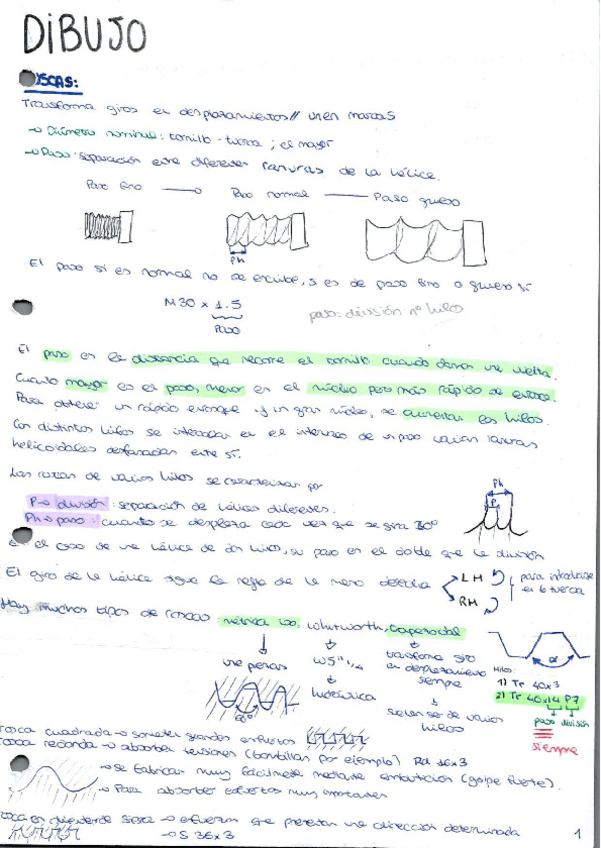 DIBUJO
ROSCAS:
Transforma giros en desplazamientos // unen marcas
→ Diámetro nominal: tornillo - tuerca ; el mayor
→ Paso: separación entre diferentes ranuras de la hélice.
Paso fino → Paso normal — Paso grueso
Ph
El paso si es normal no se escribe, si es de paso fino o grueso sí
M30 x 1.5
Paso
paso: división nº hilos
El paso es la distancia que recorre el tornillo cuando damos una vuelta.
Cuanto mayor es el paso, menor es el núcleo pero más rápido se enrosca.
Para obtener un rápido enrosque y un gran núcleo, se aumentan los hilos.
Con distintos hilos se intercalan en el intervalo de un paso varias ranuras
helicoidales desfasadas entre sí.
Las roscas de varios hilos se caracterizan por
Ph
P
P → división: separación de hélices diferentes.
Ph → paso: cuanto se desplaza cada vez que se gira 360°
En el caso de una hélice de dos hilos, su paso es el doble que la división
El giro de la hélice sigue la regla de la mano derecha
LH
RH
para introducirse en la tuerca
Hay muchos tipos de roscas: métrica iso, Whitworth, trapezoidal
une piezas
60°
WS 1/4
hidráulica
transforma giro en desplazamiento siempre
suelen ser de varios hilos
α
Hilos:
1) Tr 40x3
2) Tr 40x14 P7
paso división
siempre
rosca cuadrada → someter grandes esfuerzos
rosca redonda → absorber tensiones (bombillas por ejemplo) Rd 36x3
→ se fabrican muy fácilmente mediante embutición (golpe fuerte).
→ Para absorber esfuerzos muy importantes
rosca en diente de sierra → esfuerzos que presentan una dirección determinada
→ S 36x3
1